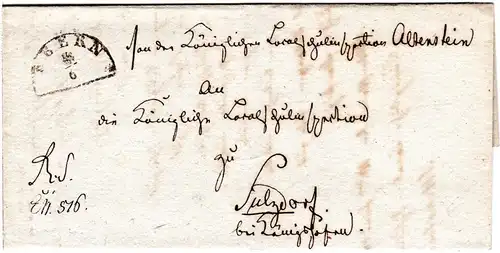 EBERN
Von der Königlichen Localschulinspection Altenstein
An
die Königliche Localschulinspection
zu
Sulzdorf
bei Königshofen.
R. S.
E.N. 516.